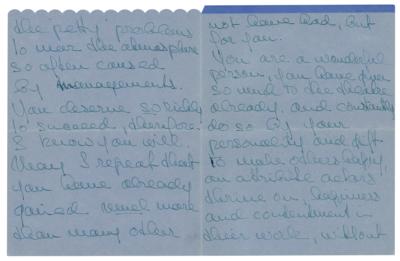 the petty problems
to mar the atmosphere
so often caused
by managements.
You deserve so richly
to succeed, therefore
I know you will
May I repeat that
you have already
gained much more
than many others
not have had, but
for you.
You are a wonderful
person, you have given
so much to the theatre
already, and constantly
do so by your
personality and gift
to make others happy,
an attribute actors
thrive on, happiness
and contentment in
their work, without